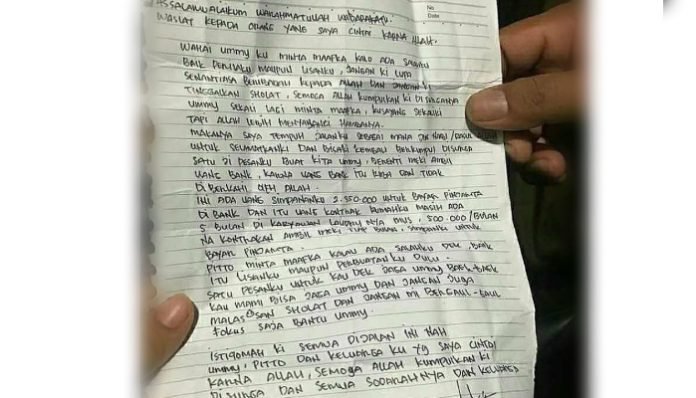 No
Date
ASSALAMUALAIKUM WARAHMATULLAH WABARAKATU.
WASIAT KEPADA ORANG YANG SAYA CINTAI KARNA ALLAH.
WAHAI UMMY KU MINTA MAAFKA KALO ADA SALAHKU
BAIK PERILAKU MAUPUN LISANKU, JANGAN KI LUPA
SENANTIASA BERIBADAH KEPADA ALLAH DAN JANGAN KI
TINGGALKAN SHOLAT, SEMOGA ALLAH KUMPULKAN KI DI SURGANYA
UMMY SEKALI LAGI MINTA MAAFKA, KUSAYANG SEKALIKI
TAPI ALLAH LEBIH MENYAYANGI HAMBANYA.
MAKANYA SAYA TEMPUH JALANKU SEBAGAI MANA JALAN NABI / RASUL ALLAH
UNTUK SELAMATKANKI DAN BISAKI KEMBALI BERKUMPUL DI SURGA
SATU JI PESANKU BUAT KITA UMMY, BERENTI MEKI AMBIL
UANG BANK, KARNA UANG BANK ITU RIBA DAN TIDAK
DI BERKAHI OLEH ALLAH.
INI ADA UANG SIMPANANKU 2.350.000 UNTUK BAYAR PINJAMTA
DI BANK DAN ITU UANG KONTRAK RUMAHKU MASIH ADA
5 BULAN DI KARYAWAN LAUNDRYNYA MUS, 500.000/BULAN
NA KONTRAKAN AMBIL MEKI TIAP BULAN, SIMPANKI UNTUK
BAYAR PINJAMTA.
PITTO MINTA MAAFKA KALAU ADA SALAHKU DEK, BAIK
ITU LISANKU MAUPUN PERBUATANKU DULU.
SATU PESANKU UNTUK KAU DEK JAGA UMMY BAEK-BAEK
KAU MAMI BISA JAGA UMMY DAN JANGAN JUGA
MALAS2SAN SHOLAT DAN JANGAN MI BERGAUL-GAUL
FOKUS SAJA BANTU UMMY.
ISTIQOMAH KI SEMUA DIJALAN INI NAH
UMMY, PITTO DAN KELUARGA KU YG SAYA CINTAI
KARNA ALLAH, SEMOGA ALLAH KUMPULKAN KI
DISURGA DAN SEMUA SODARAHNYA DAN KELUARGA